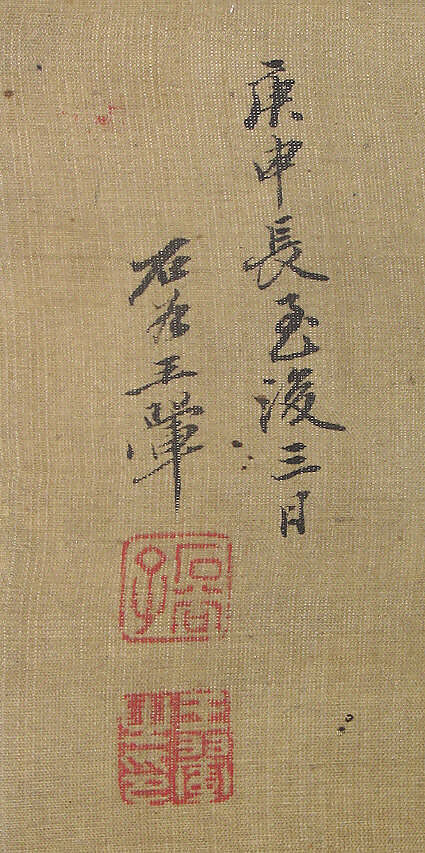 庚申長至後三日
石谷王翬
石谷子
王翬之印